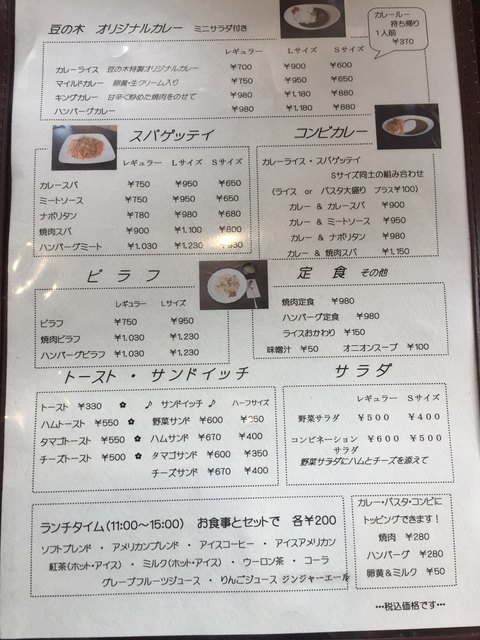 豆の木 オリジナルカレー ミニサラダ付き
カレールー
持ち帰り
1人前
¥370
レギュラー Lサイズ Sサイズ
カレーライス 豆の木特製オリジナルカレー ¥700 ¥900 ¥600
マイルドカレー 卵黄・生クリーム入り ¥750 ¥950 ¥650
キングカレー 甘辛く炒めた焼肉をのせて ¥980 ¥1,180 ¥880
ハンバーグカレー ¥980 ¥1,180 ¥880
スパゲッティ
レギュラー Lサイズ Sサイズ
カレースパ ¥750 ¥950 ¥650
ミートソース ¥750 ¥950 ¥650
ナポリタン ¥780 ¥980 ¥680
焼肉スパ ¥900 ¥1,100 ¥800
ハンバーグミート ¥1,030 ¥1,230 ¥930
コンビカレー
カレーライス・スパゲッティ
Sサイズ同士の組み合わせ
(ライス or パスタ大盛り プラス¥100)
カレー & カレースパ ¥900
カレー & ミートソース ¥950
カレー & ナポリタン ¥980
カレー & 焼肉スパ ¥1,150
ピラフ
レギュラー Lサイズ
ピラフ ¥750 ¥950
焼肉ピラフ ¥1,030 ¥1,230
ハンバーグピラフ ¥1,030 ¥1,230
定食 その他
焼肉定食 ¥980
ハンバーグ定食 ¥980
ライスおかわり ¥150
味噌汁 ¥50 オニオンスープ ¥100
トースト・サンドイッチ
トースト ¥330 ✿ ♪ サンドイッチ ♪ ハーフサイズ
ハムトースト ¥550 ✿ 野菜サンド ¥600 ¥350
タマゴトースト ¥550 ✿ ハムサンド ¥670 ¥400
チーズトースト ¥500 ✿ タマゴサンド ¥600 ¥350
チーズサンド ¥670 ¥400
サラダ
レギュラー Sサイズ
野菜サラダ ¥500 ¥400
コンビネーション ¥600 ¥500
サラダ
野菜サラダにハムとチーズを添えて
ランチタイム(11:00~15:00) お食事とセットで 各¥200
ソフトブレンド・アメリカンブレンド・アイスコーヒー・アイスアメリカン
紅茶(ホット・アイス)・ミルク(ホット・アイス)・ウーロン茶・コーラ
グレープフルーツジュース・りんごジュース ジンジャーエール
カレー・パスタ・コンビに
トッピングできます!
焼肉 ¥280
ハンバーグ ¥280
卵黄&ミルク ¥50
•••税込価格です•••